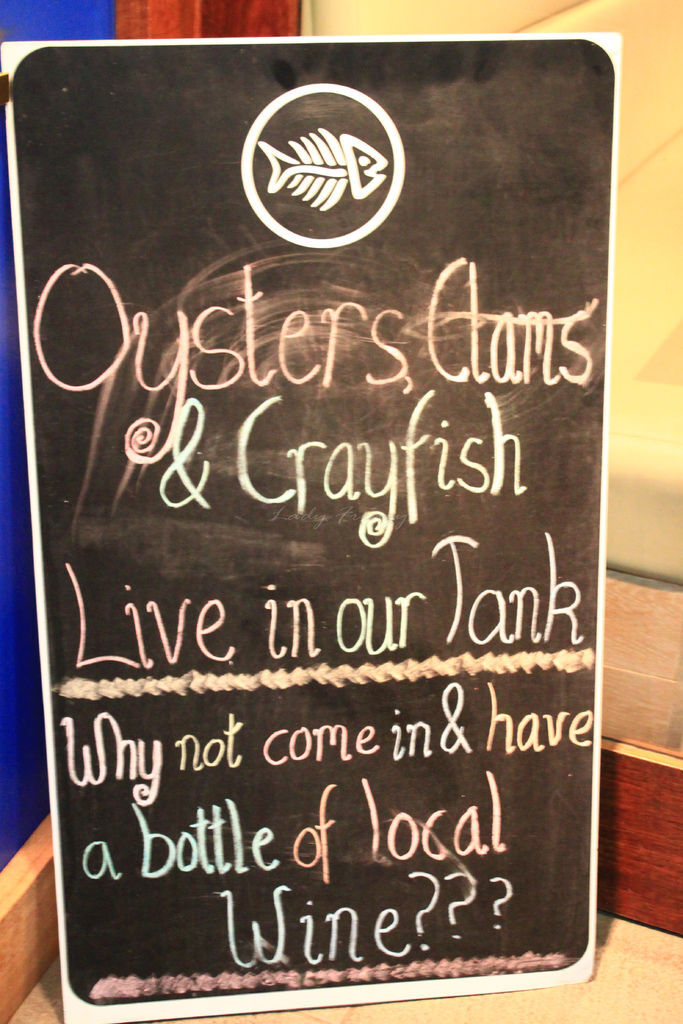 Oysters, Clams
& Crayfish
Live in our Tank
Why not come in & have
a bottle of local
Wine???